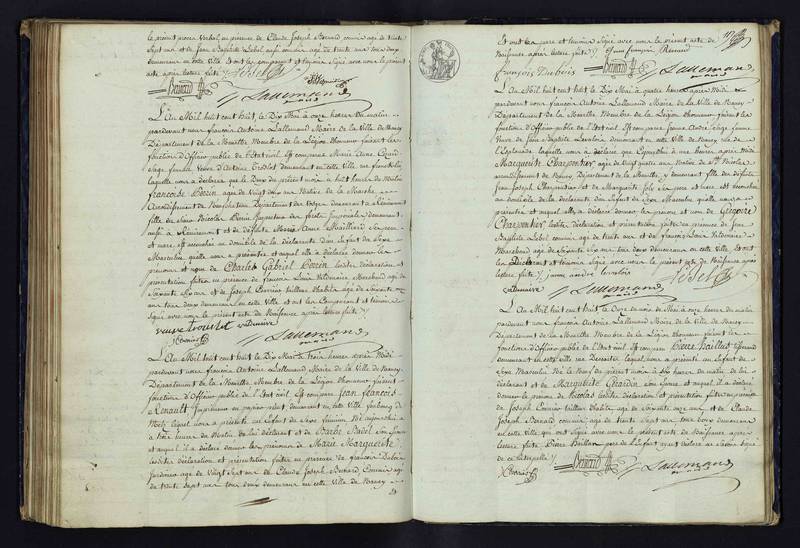 le présent procès Verbal, en présence de Claude Joseph Bernard commis agé de trente
Sept ans et de Jean Baptiste Lebel aussi commis agé de trente ans tous deux
demeurans en cette Ville Et ont les comparans et témoins Signé avec nous le présent
acte après lecture faite
Bernard
Lallemand
L'An Mil huit cent huit, le Dix Mai à onze heures du matin
pardevant nous françois Antoine Lallemand Maire de la Ville de Nancy
Département de la Meurthe Membre de la Légion d'honneur faisant les
fonctions d'Officier public de l'état civil, Est comparue Marie Anne
Sage femme Veuve d'Antoine demeurant en cette Ville rue
laquelle nous a déclaré que le Deux du présent mois à huit heures du Matin
françoise Perrin agée de Vingt deux ans Native de
Arrondissement de Neufchateau Département des Vosges demeurant à
fille de Nicolas Perrin Inspecteur des forêts Impériales demeurant
aussi à et de défunte Marie Anne Ses père
et mere, est accouchée au domicile de la déclarante d'un Enfant de Sexe
Masculin, qu'elle nous a présenté et auquel elle a déclaré donner les
prenoms et nom de Charles Gabriel Perrin lesdites déclaration et
présentation faites en présence de françois Louis Valdenaire Marchand agé de
Soixante Six ans et de Joseph Perrier tailleur d'habits agé de Soixante
ans tous deux demeurans en cette Ville et ont les Comparant et témoins
Signé avec nous le présent acte de Naissance après lecture faite
veuve trotot valdenaire
Lallemand
L'An Mil huit cent huit le Dix Mai à trois heures après Midi
pardevant nous françois Antoine Lallemand Maire de la Ville de Nancy,
Département de la Meurthe, Membre de la Légion d'honneur, faisant les
fonctions d'Officier public de l'état civil, Est comparu Jean françois
Renault Imprimeur en papier peint demeurant en cette Ville faubourg de
Metz lequel nous a présenté un Enfant de Sexe féminin Né aujourd'hui
à trois heures du Matin de lui déclarant et de Barbe Son Epouse
et auquel il a déclaré donner les prénoms de Marie Marguerite
lesdites déclaration et présentation faites en présence de françois Dubois
Jardinier agé de Vingt Sept ans et de Claude Joseph Bernard Commis agé
de trente Sept ans tous deux demeurans en cette ville de Nancy
Et ont les père et témoins Signé avec nous le présent acte de
Naissance après lecture faite Jean françois Renaud
françois Dubois
Bernard
Lallemand
L'An Mil huit cent huit, le Dix Mai à quatre heures après Midi
pardevant nous françois Antoine Lallemand Maire de la Ville de Nancy
Département de la Meurthe Membre de la Légion d'honneur faisant les
fonctions d'Officier public de l'état civil, Est comparue Jeanne André Sage femme
Veuve de Jean Baptiste demeurant en cette Ville de Nancy rue de
l'Esplanade laquelle nous a déclaré que à une heure après Midi
Marguerite Charpentier agée de Vingt quatre ans Native de St Nicolas
arrondissement de Nancy Département de la Meurthe, y demeurant fille des défunts
Jean Joseph Charpentier et de Marguerite Ses père et mere est accouchée
au domicile de la déclarante d'un Enfant de Sexe Masculin, qu'elle nous a
présenté et auquel elle a déclaré donner les prenom et nom de Grégoire
Charpentier lesdites déclaration et présentation faites en présence de Jean
Baptiste Lebel commis agé de trente ans et de françois Louis Valdenaire
Marchand agé de Soixante Six ans tous deux demeurans en cette Ville Et ont
les Déclarant et témoins Signé avec nous le présent acte de Naissance après
lecture faite
valdenaire
Lebel
Lallemand
L'An Mil huit cent huit le Onze du mois de Mai à onze heures du matin
pardevant nous françois Antoine Lallemand Maire de la Ville de Nancy
Département de la Meurthe Membre de la Légion d'honneur faisant les
fonctions d'Officier public de l'état civil, Est comparu Pierre haillan
demeurant en cette ville rue lequel nous a présenté un Enfant de
Sexe Masculin Né le Neuf du présent mois à Six heures du matin de lui
déclarant et de Marguerite Gérardin son Epouse et auquel il a déclaré
donner le prénom de Nicolas lesdites déclaration et présentation faites en présence
de Joseph Perrier tailleur d'habits, agé de Soixante ans et de Claude
Joseph Bernard commis agé de trente Sept ans tous deux demeurans
en cette ville qui ont Signé avec nous le présent acte de Naissance après
lecture faite, Pierre haillan père de l'Enfant ayant déclaré ne Savoir Signer
de ce interpellé
Bernard
Lallemand